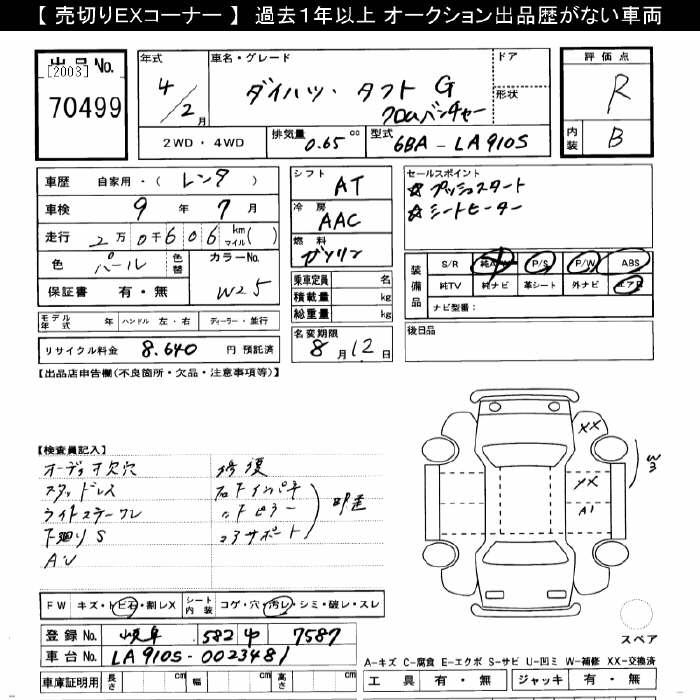 【 売切りEXコーナー 】 過去1年以上 オークション出品歴がない車両
出品 No.
[2003]
70499
年式 4/2月
車名・グレード ダイハツ・タフト G
クロムベンチャー
ドア
形状
2WD・4WD
排気量 0.65cc
型式 6BA-LA910S
評価点
R
内装 B
車歴 自家用・( レンタ )
車検 9年7月
走行 2万0千606 km マイル( )
色 パール
色替
カラーNo. W25
保証書 有・無
モデル年式 年 ハンドル 左・右 ディーラー・並行
リサイクル料金 8.640 円 預託済
シフト AT
冷房 AAC
燃料 ガソリン
乗車定員 名
積載量 kg
総重量 kg
名変期限
8月12日
セールスポイント
☆プッシュスタート
☆シートヒーター
装備品
S/R 純AW P/S P/W ABS
純TV 純ナビ 革シート 外ナビ エアB
ナビ型番:
後日品
【出品店申告欄(不良箇所・欠品・注意事項等)】
【検査員記入】
オーディオ欠穴
スタッドレス
ライトステーワレ
下廻りS
AU
修復
コアサポート
XX
XX
A1
W3
FW キズ・トビ石・割レX
シート内装 コゲ・穴・汚レ・シミ・破レ・スレ
登録 No. 岐阜 582 や 7587
車台 No. LA910S-0023481
車庫証明用 長さ cm 幅 cm 高さ cm
スペア
A-キズ C-腐食 E-エクボ S-サビ U-凹ミ W-補修 XX-交換済
工具 有・無 ジャッキ 有・無